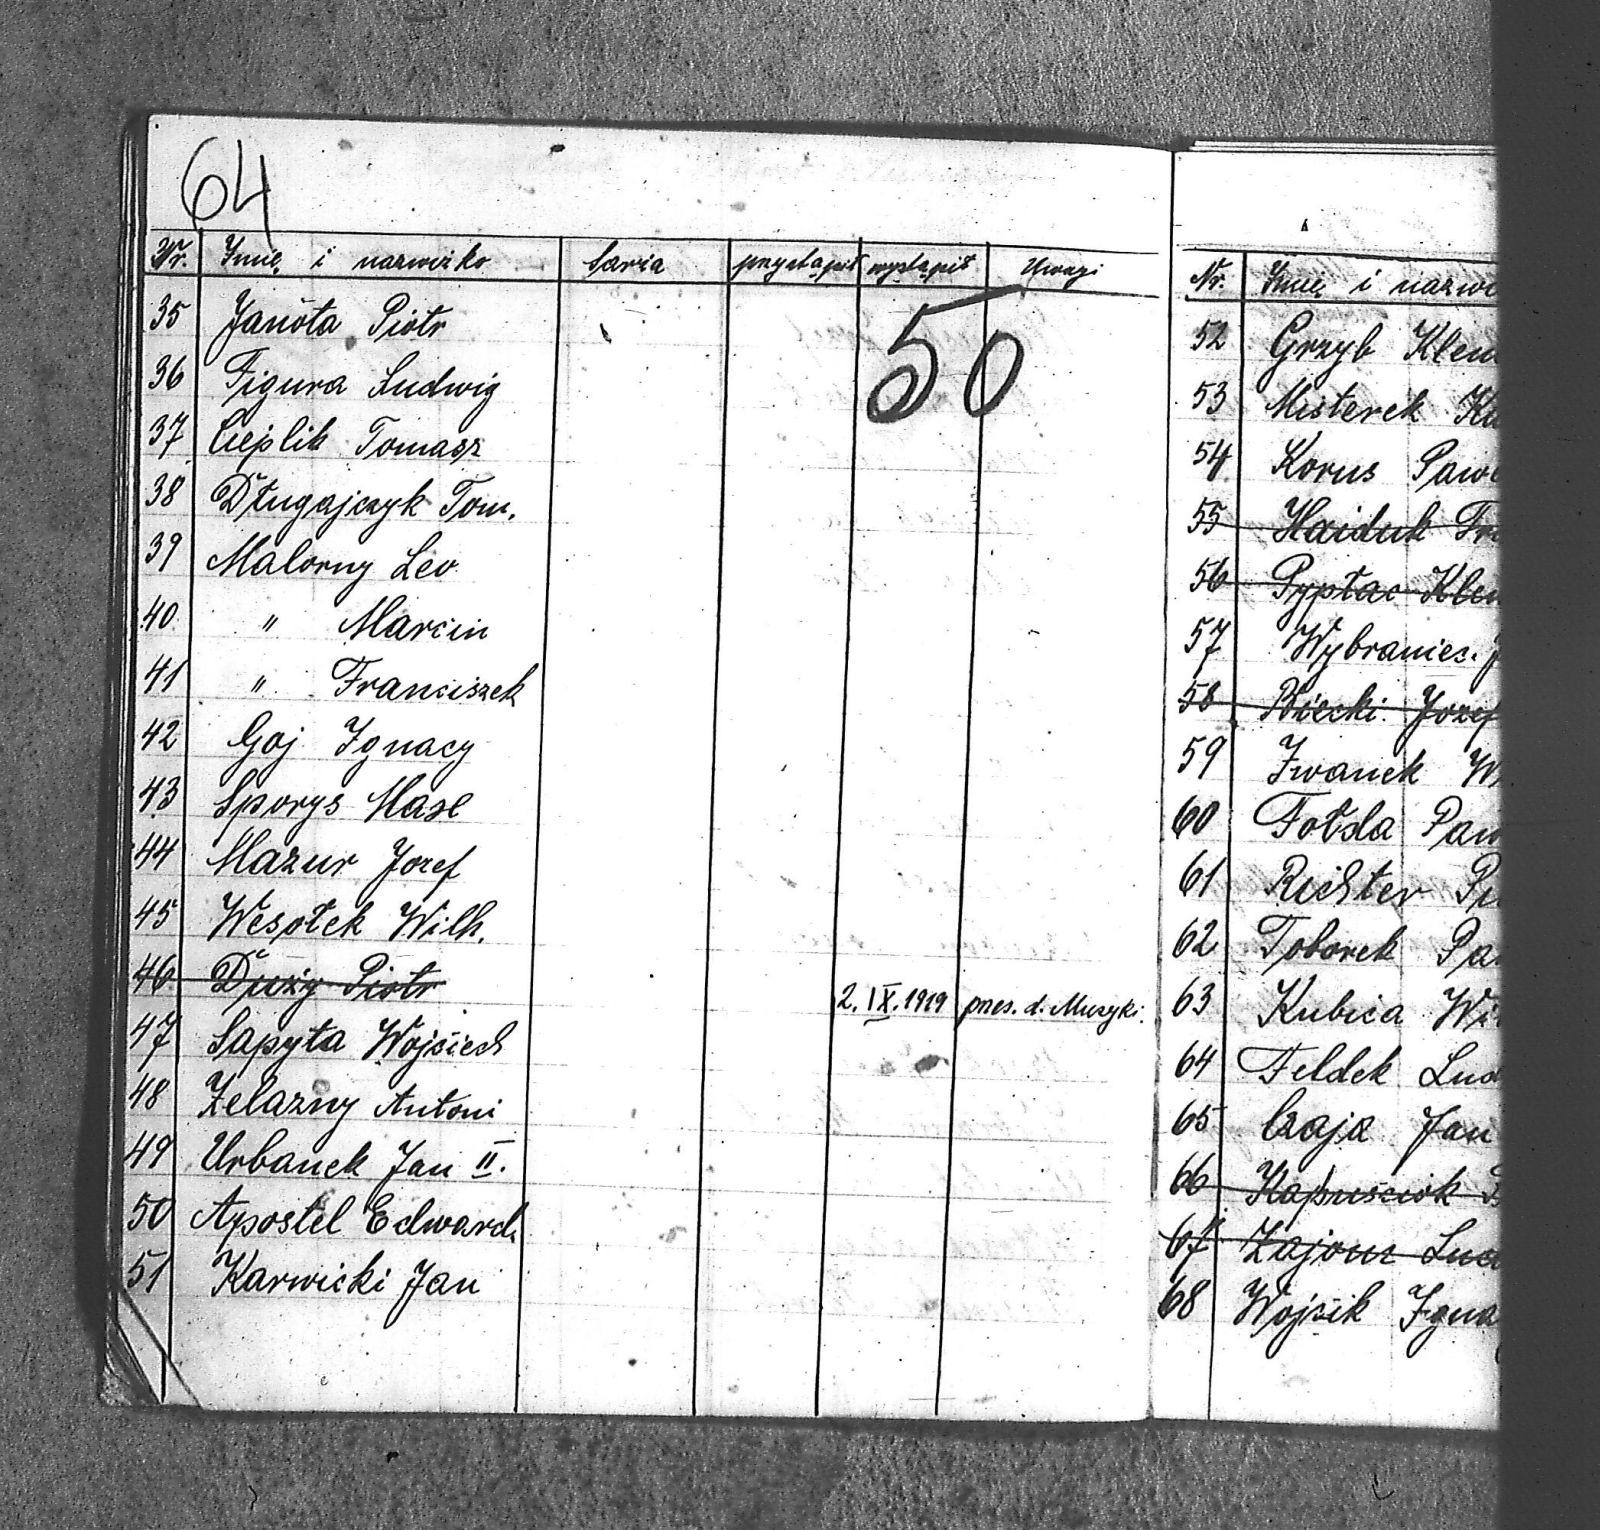 64
Nr. Imię i nazwizko Saria przystąpił wystąpił Uwagi
50
35 Janota Piotr
36 Figura Ludwig
37 Cieplik Tomasz
38 Długajczyk Tom.
39 Malorny Leo
40 " Marcin
41 " Franciszek
42 Goj Ignacy
43 Sporys Max
44 Mazur Jozef
45 Wesołek Wilh.
46 Duży Piotr 2. IX. 1919 pnes. d. Muzyki.
47 Sapyta Wojciech
48 Żelazny Antoni
49 Urbanek Jan II.
50 Apostel Edward
51 Karwicki Jan
Nr. Imię i nazwi
52 Grzyb Klem
53 Misterek
54 Korus Pawe
55 Haiduk Fr
56 Pyptac Klem
57 Wybraniec.
58 Jozef
59 Iwanek W
60 Fołda Paw
61 Richter
62 Toborek Pa
63 Kubica Wi
64 Feldek Lud
65 Czaja Jan
66 Kapuściok
67 Zajonz Lud
68 Wojcik Igna